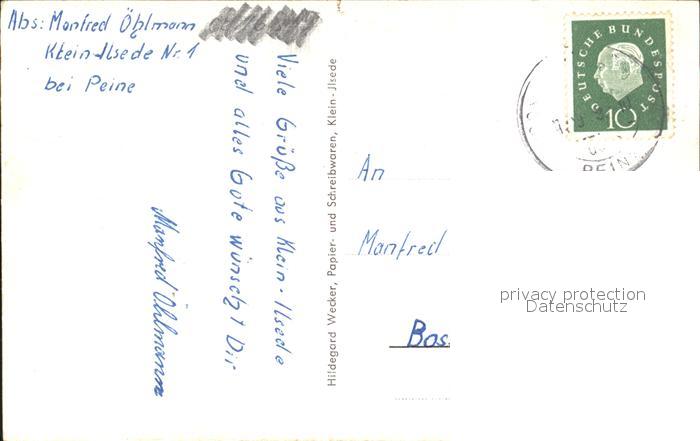 Abs: Manfred Öhlmann
Klein-Ilsede Nr. 1
bei Peine
Viele Grüße aus Klein-Ilsede
und alles Gute wünscht Dir
Manfred Öhlmann
Hildegard Wecker, Papier- und Schreibwaren, Klein-Jlsede
DEUTSCHE BUNDESPOST
10
PEIN
An
Manfred
Bos
privacy protection
Datenschutz